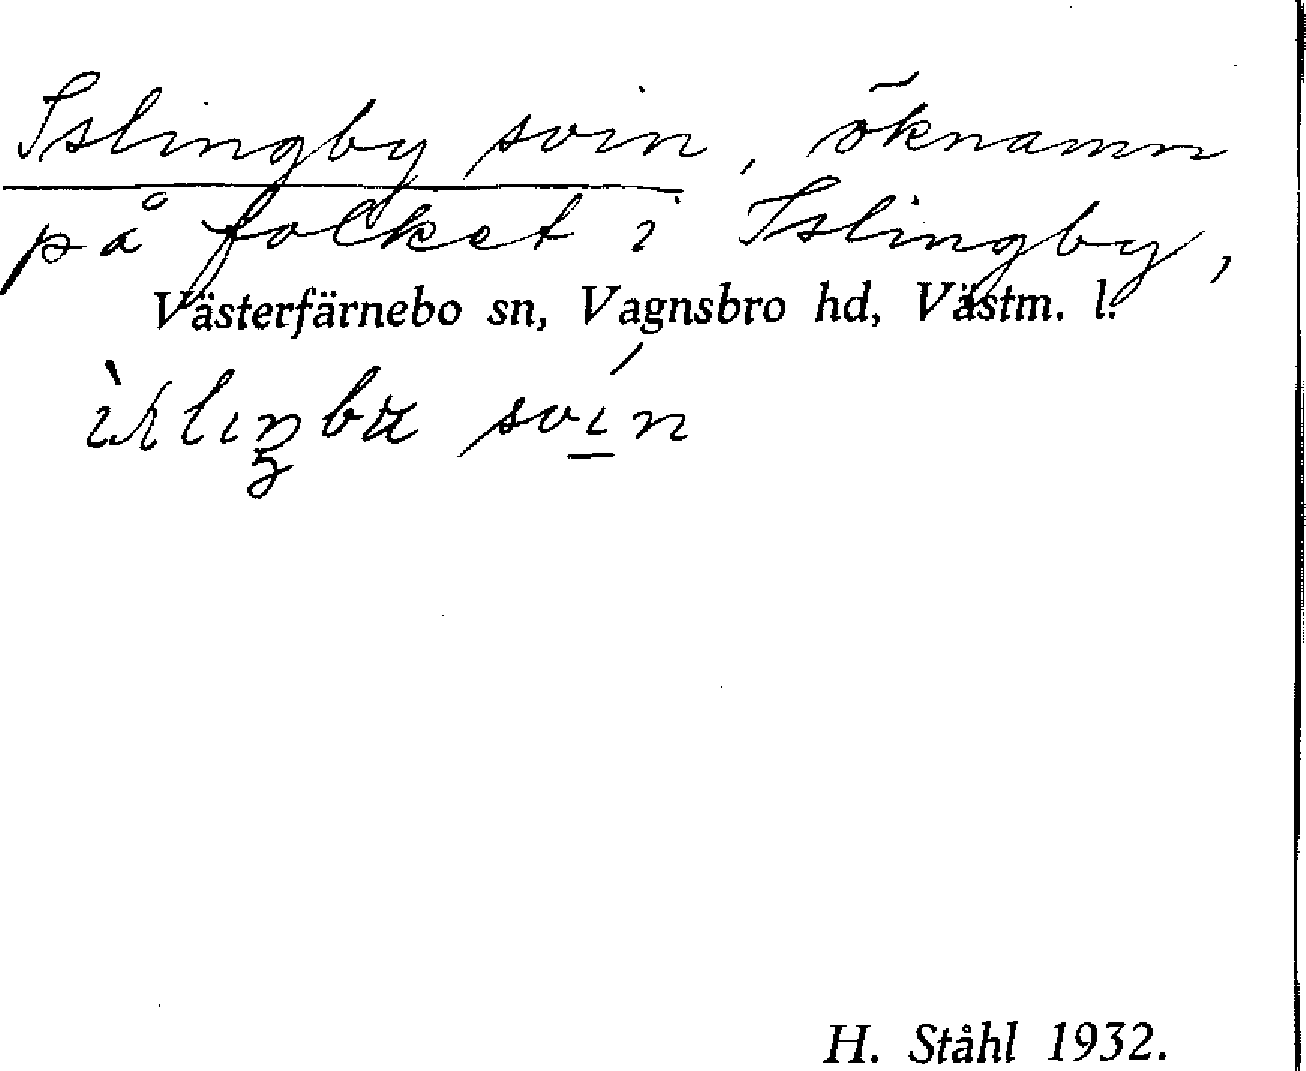 Islingby svin, öknamn
på folket i Islingby,
Västerfärnebo sn, Vagnsbro hd, Västm. l.
svín
H. Ståhl 1932.